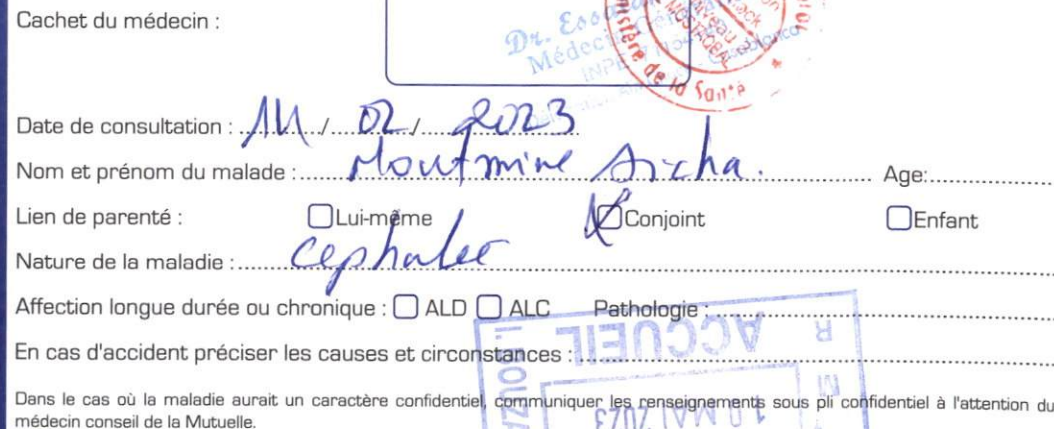 Cachet du médecin :
Dr.
Médecin
INPE
Ministère de la Santé
Date de consultation : 14 / 02 / 2023
Nom et prénom du malade : Moutmine Aicha. Age:
Lien de parenté : Lui-même Conjoint Enfant
Nature de la maladie : cephalee
Affection longue durée ou chronique : ALD ALC Pathologie :
ACCUEIL
En cas d'accident préciser les causes et circonstances :
10 MAI 2023
Dans le cas où la maladie aurait un caractère confidentiel, communiquer les renseignements sous pli confidentiel à l'attention du
médecin conseil de la Mutuelle.